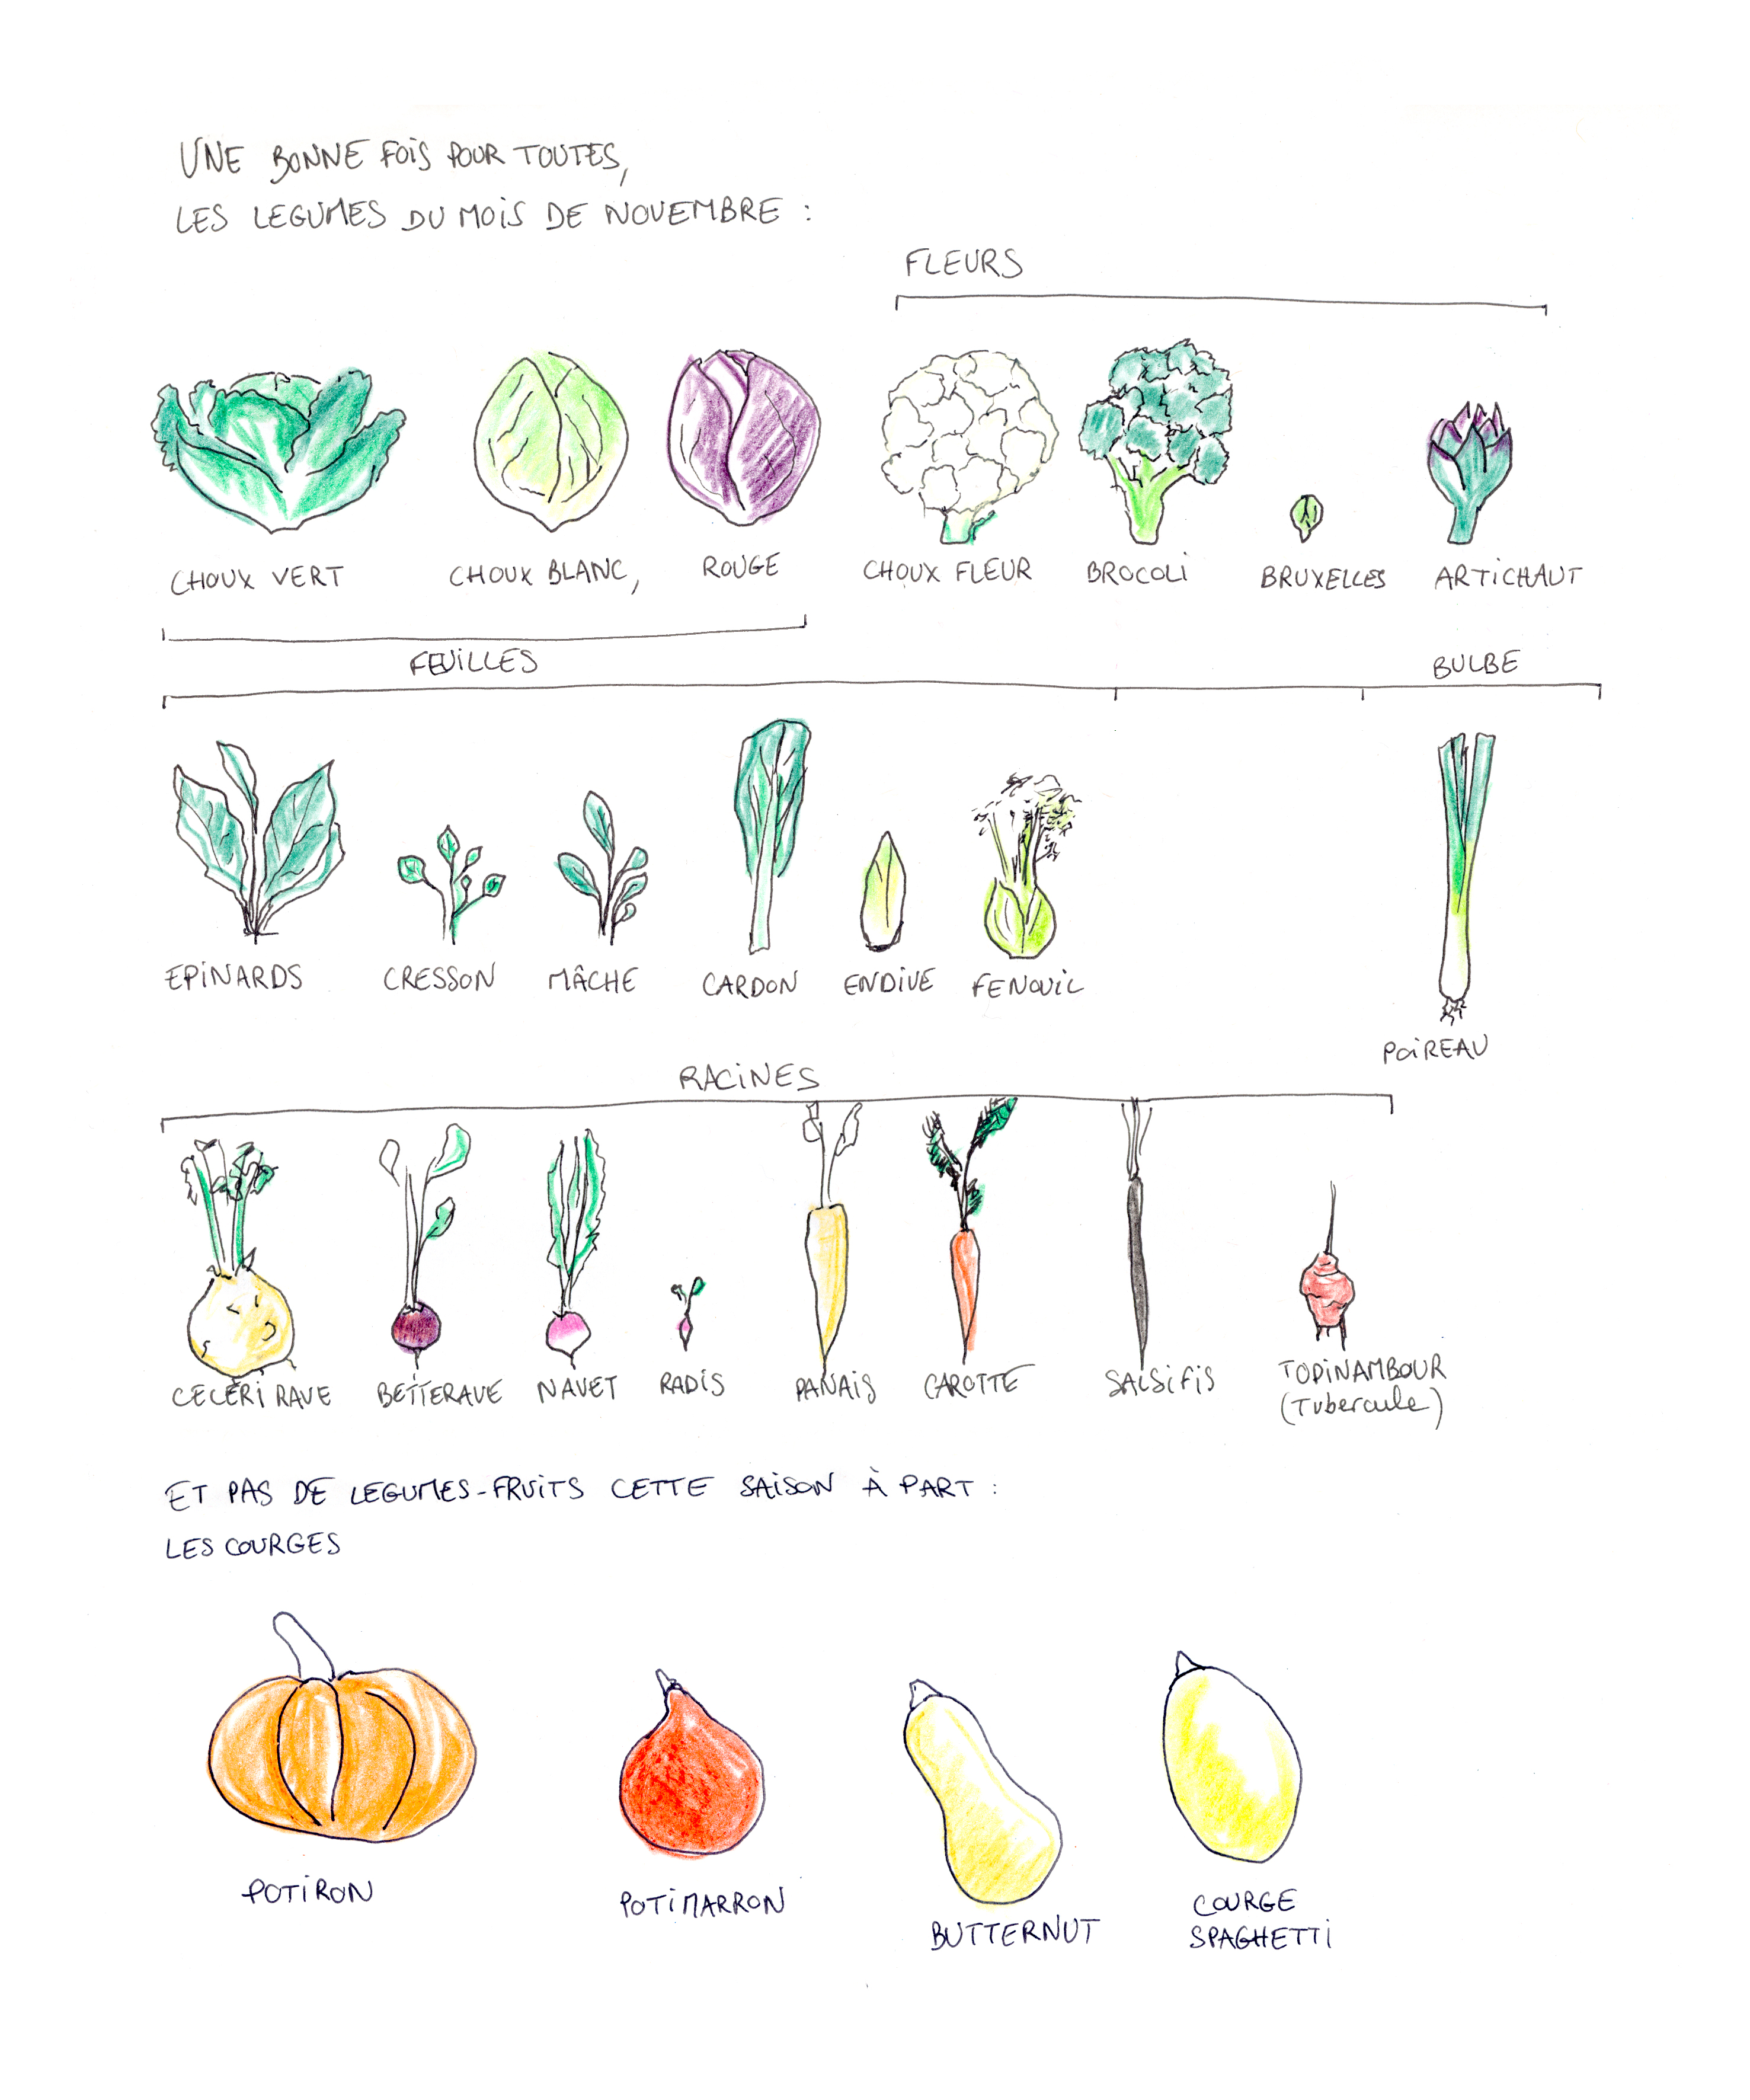 UNE BONNE FOIS POUR TOUTES,
LES LEGUMES DU MOIS DE NOVEMBRE :
FLEURS
CHOUX VERT
CHOUX BLANC,
ROUGE
CHOUX FLEUR
BROCOLI
BRUXELLES
ARTICHAUT
FEUILLES
BULBE
EPINARDS
CRESSON
MÂCHE
CARDON
ENDIVE
FENOUIL
POIREAU
RACINES
CELERI RAVE
BETTERAVE
NAVET
RADIS
PANAIS
CAROTTE
SALSIFIS
TOPINAMBOUR
(Tubercule)
ET PAS DE LEGUMES-FRUITS CETTE SAISON À PART :
LES COURGES
POTIRON
POTIMARRON
BUTTERNUT
COURGE
SPAGHETTI